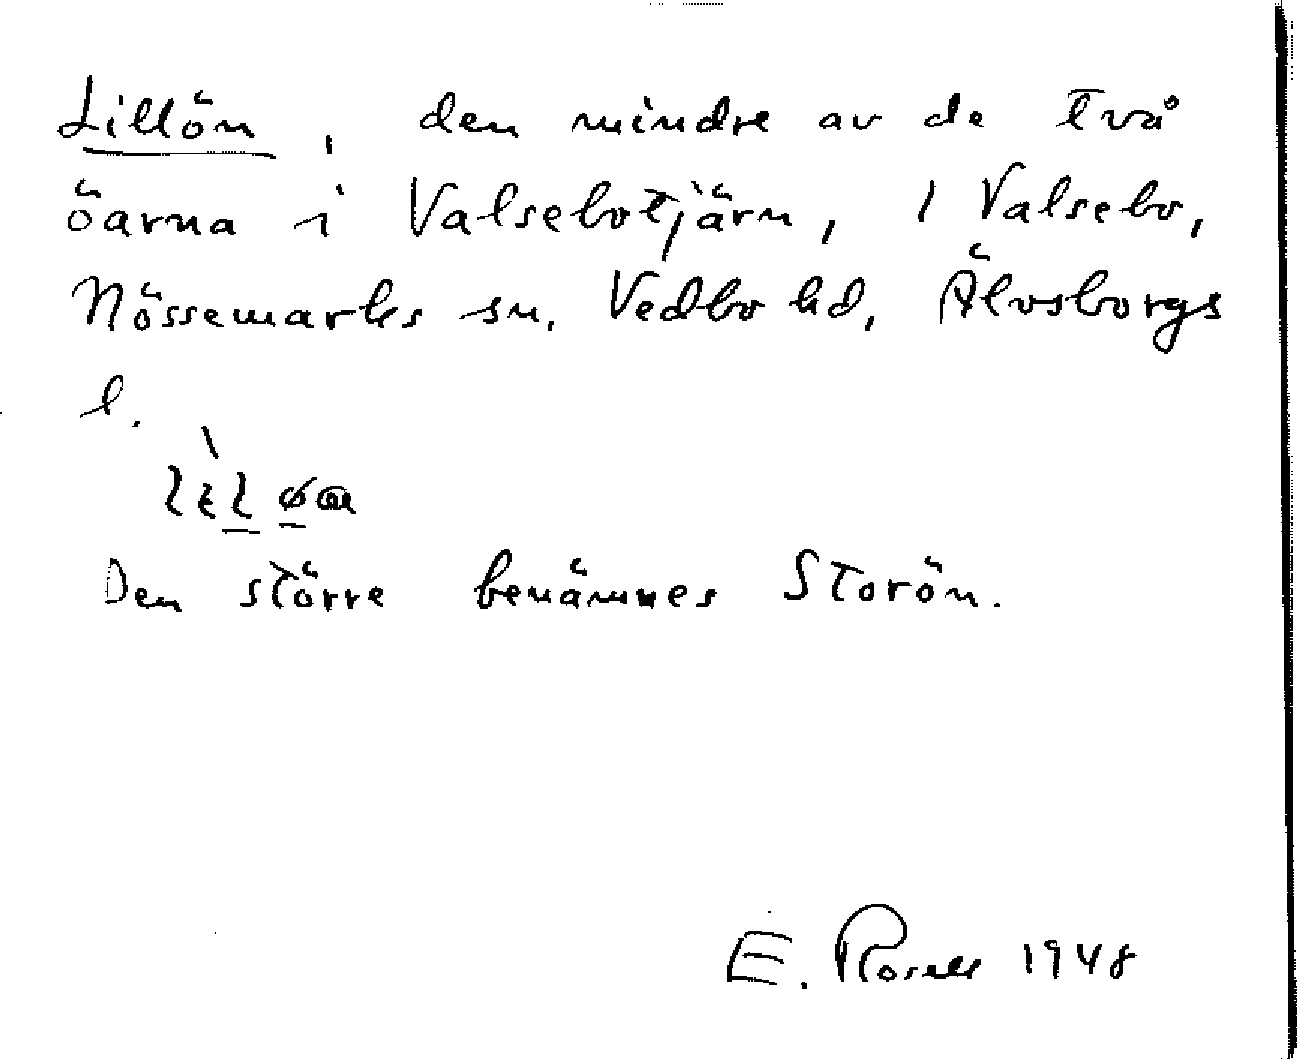 Lillön, den mindre av de två
öarna i Valsebotjärn, 1 Valsebo,
Nössemarks sn, Vedbo hd, Älvsborgs
l.
Den större benämnes Storön.
E. Rosell 1948